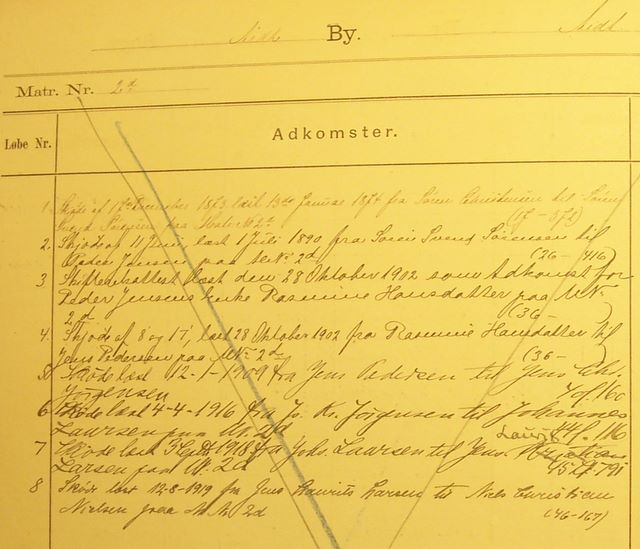 By.
Matr. Nr. 2d
Løbe Nr.
Adkomster.
1. Skjøde af 17de December 1873, læst 13de Januar 1874 fra Søren Christensen til Søren
Svend Sørensen paa Matr. No 2d
2. Skjøde af 11 Juni, læst 1 Juli 1890 fra Søren Svend Sørensen til
Peder Jensen paa M.Nr. 2d (26- 416)
3 Skifteretsattest læst den 28 Oktober 1902 som Adkomst for
Peder Jensens Enke Rasmine Hansdatter paa M.Nr.
2d (36- )
4. Skjøde af 8 og 17, læst 28 Oktober 1902 fra Rasmine Hansdatter til
Jens Pedersen paa M.Nr. 2d (36- )
5 Skøde læst 12-1-1909 fra Jens Pedersen til Jens Chr.
Jørgensen
6 Skøde læst 4-4-1916 fra Js. Kr. Jørgensen til Johannes
Laursen paa M. 2d 44f. 116
7 Skøde læst 3 Septr 1918 fra Johs. Laursen til Jens Laurits
Larsen paa M. 2d 45 791
8 Skøde læst 12-8-1919 fra Jens Laurits Larsen til Niels Christian
Nielsen paa M.Nr. 2d (46-167)